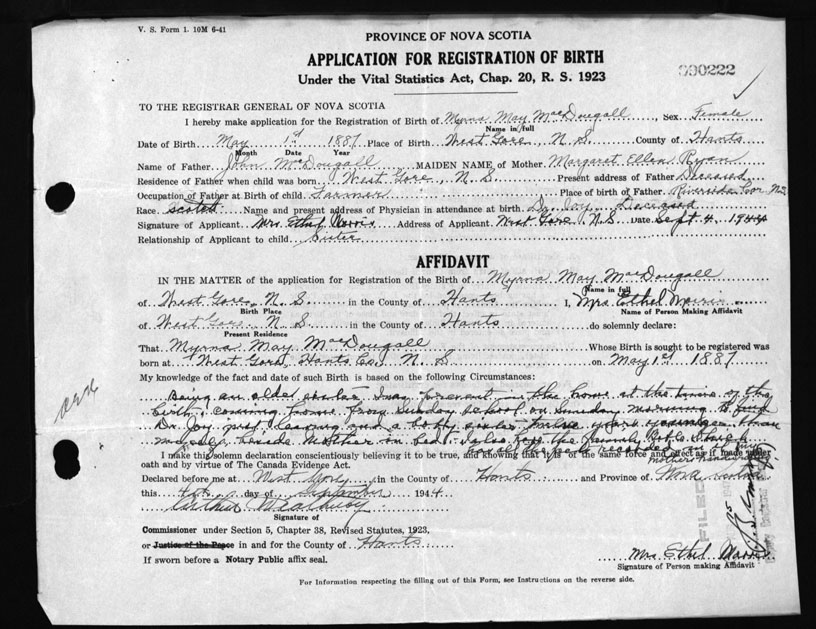 V. S. Form 1. 10M 6-41
PROVINCE OF NOVA SCOTIA
APPLICATION FOR REGISTRATION OF BIRTH
Under the Vital Statistics Act, Chap. 20, R. S. 1923
090222
TO THE REGISTRAR GENERAL OF NOVA SCOTIA
I hereby make application for the Registration of Birth of Myrna May MacDougall, Sex Female
Name in full
Date of Birth May 1st 1887 Place of Birth West Gore, N. S. County of Hants
Month Date Year
Name of Father John McDougall MAIDEN NAME of Mother Margaret Ellen Ryan
Residence of Father when child was born West Gore, N S Present address of Father Deceased
Occupation of Father at Birth of child Farmer Place of birth of Father Riverside Cor N.S.
Race Scotch Name and present address of Physician in attendance at birth Dr Joy, Deceased
Signature of Applicant Mrs Ethel Morris Address of Applicant West Gore, N.S Date Sept 4, 1944
Relationship of Applicant to child Sister
AFFIDAVIT
IN THE MATTER of the application for Registration of the Birth of Myrna May MacDougall
Name in full
of West Gore, N. S. in the County of Hants I, Mrs Ethel Morris
Birth Place Name of Person Making Affidavit
of West Gore N. S in the County of Hants do solemnly declare:
Present Residence
That Myrna May MacDougall Whose Birth is sought to be registered was
born at West Gore, Hants Co, N. S. on May 1st 1887
My knowledge of the fact and date of such Birth is based on the following Circumstances:
Being an older sister, I was present in the home at the time of the
birth, coming home from Sunday School on Sunday morning to find
Dr Joy just leaving and a baby sister twelve years younger than
myself beside Mother in bed. I also have the family Bible which
has the record
mothers handwriting
I make this solemn declaration conscientiously believing it to be true, and knowing that it is of the same force and effect as if made under
oath and by virtue of The Canada Evidence Act.
Declared before me at West Gore in the County of Hants and Province of Nova Scotia
this 4th day of September 1944
Arthur
Signature of
Commissioner under Section 5, Chapter 38, Revised Statutes, 1923,
or Justice of the Peace in and for the County of Hants
If sworn before a Notary Public affix seal.
FILED
Mrs Ethel Morris
Signature of Person making Affidavit
For Information respecting the filling out of this Form, see Instructions on the reverse side.